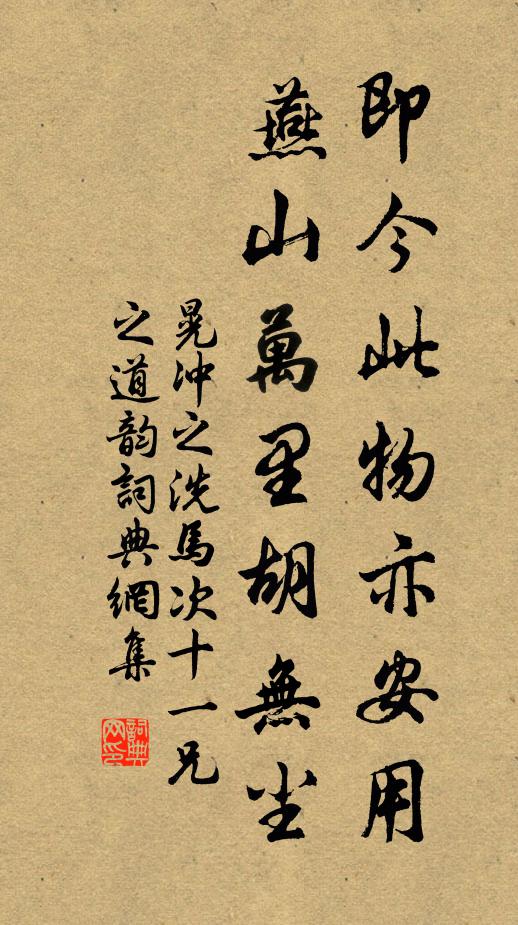 即今此物亦安用
燕山萬里胡無尘
晁沖之洗馬次十一兄
之道韵詞典網集
詞典网印